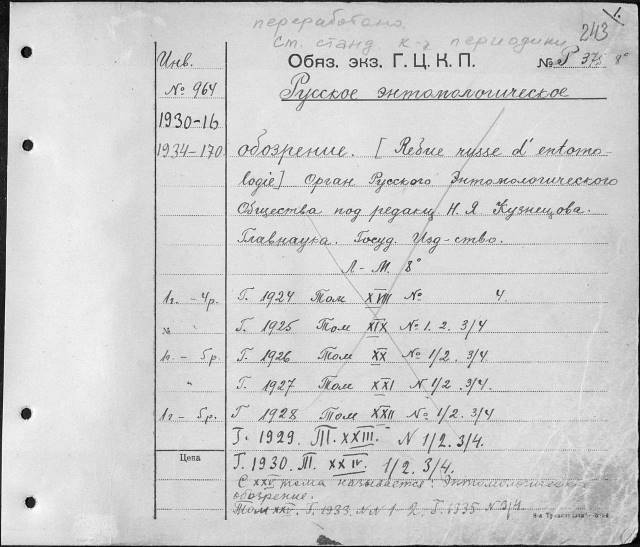 1.
переработано
243
см. станд. к-ч периодики
Инв.
Обяз. экз. Г. Ц. К. П. № Р 375 8°
№ 964
Русское энтомологическое
1930-16
1934-170 обозрение. [Revue russe d'entomo-
logie] Орган Русского Энтомологического
Общества под редакц Н. Я. Кузнецова.
Главнаука. Госуд. Изд-ство.
Л.-М. 8°
1г. - 4р. Г. 1924 Том XVIII № 4.
№ " Г. 1925 Том XIX № 1. 2. 3/4
1г. - 5р. Г. 1926 Том XX № 1/2. 3/4
" Г. 1927 Том XXI N. 1/2. 3/4.
1г - 5р. Г 1928 Том XXII № 1/2. 3/4
Г. 1929. Т. XXIII. N 1/2. 3/4.
Цена Г. 1930. Т. XXIV. 1/2. 3/4.
С XXV тома называется: Энтомологическое
обозрение.
Том XXV. Г. 1933. N N 1-2. Г. 1935 N 3/4